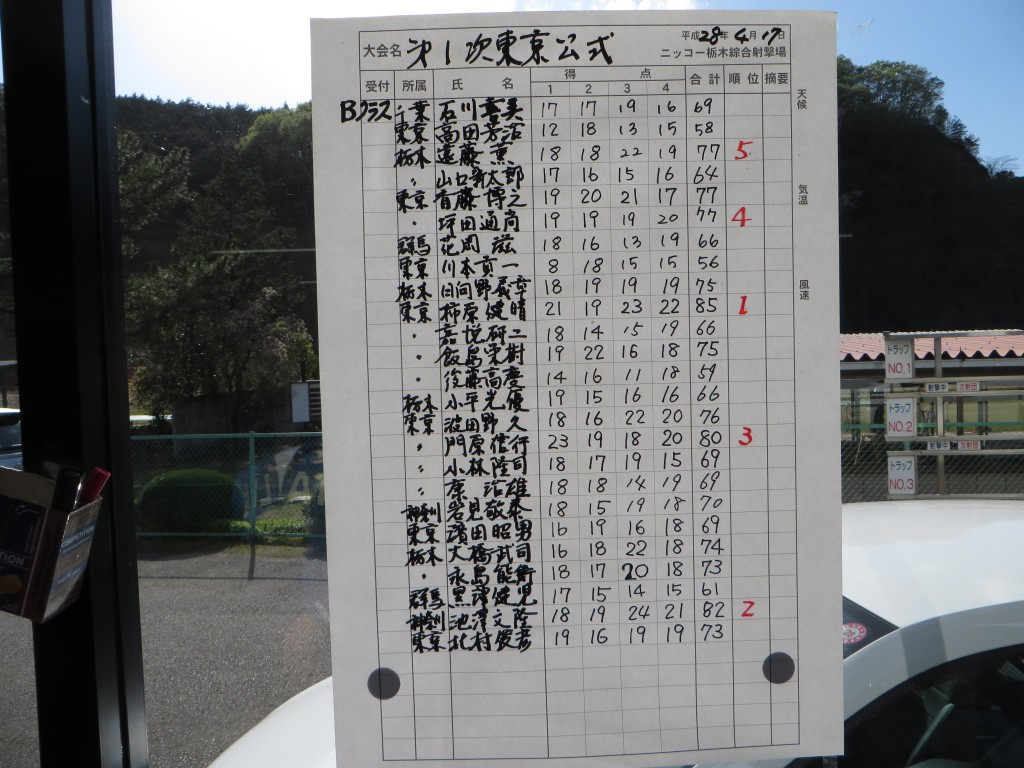 平成28年4月17日
大会名 オ1次東京公式
ニッコー栃木綜合射撃場
受付 所属 氏名 得点 合計 順位 摘要
1 2 3 4
天候
気温
風速
Bクラス 千葉 石川 17 17 19 16 69
東京 高田 12 18 13 15 58
栃木 遠藤 薫 18 18 22 19 77 5
〃 山口 太郎 17 16 15 16 64
東京 首藤 博之 19 20 21 17 77
〃 坪田通尚 19 19 19 20 77 4
群馬 花岡 滋 18 16 13 19 66
東京 川本貢一 8 18 15 15 56
栃木 日向野 章 18 19 19 19 75
東京 柿原健晴 21 19 23 22 85 1
〃 嘉悦研二 18 14 15 19 66
〃 飯島栄樹 19 22 16 18 75
〃 後藤高慶 14 16 11 18 59
栃木 小平光優 19 15 16 16 66
東京 波田野久 18 16 22 20 76
〃 門原信行 23 19 18 20 80 3
〃 小林隆司 18 17 19 15 69
〃 原 治雄 18 18 14 19 69
岩見敬泰 18 15 19 18 70
東京 濱田昭男 16 19 16 18 69
栃木 大橋武司 16 18 22 18 74
〃 永島能 18 17 20 18 73
群馬 黒澤健児 17 15 14 15 61
池澤文隆 18 19 24 21 82 2
東京 北村俊彦 19 16 19 19 73
トラップ
NO.1
射撃中
トラップ
NO.2
射撃中
トラップ
NO.3